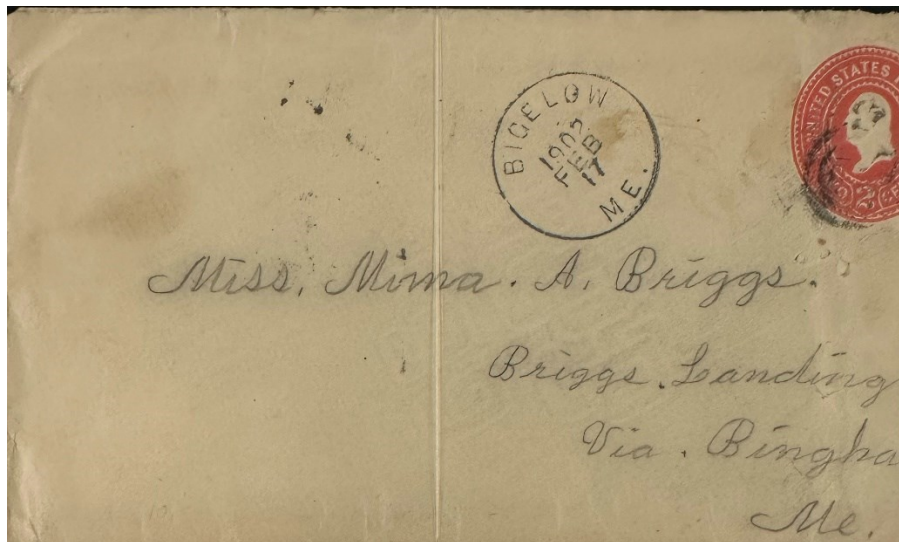 BIGELOW
1902
FEB
17
ME.
UNITED STATES
2
Miss. Mima. A. Briggs.
Briggs. Landing
Via. Bingha
Me.